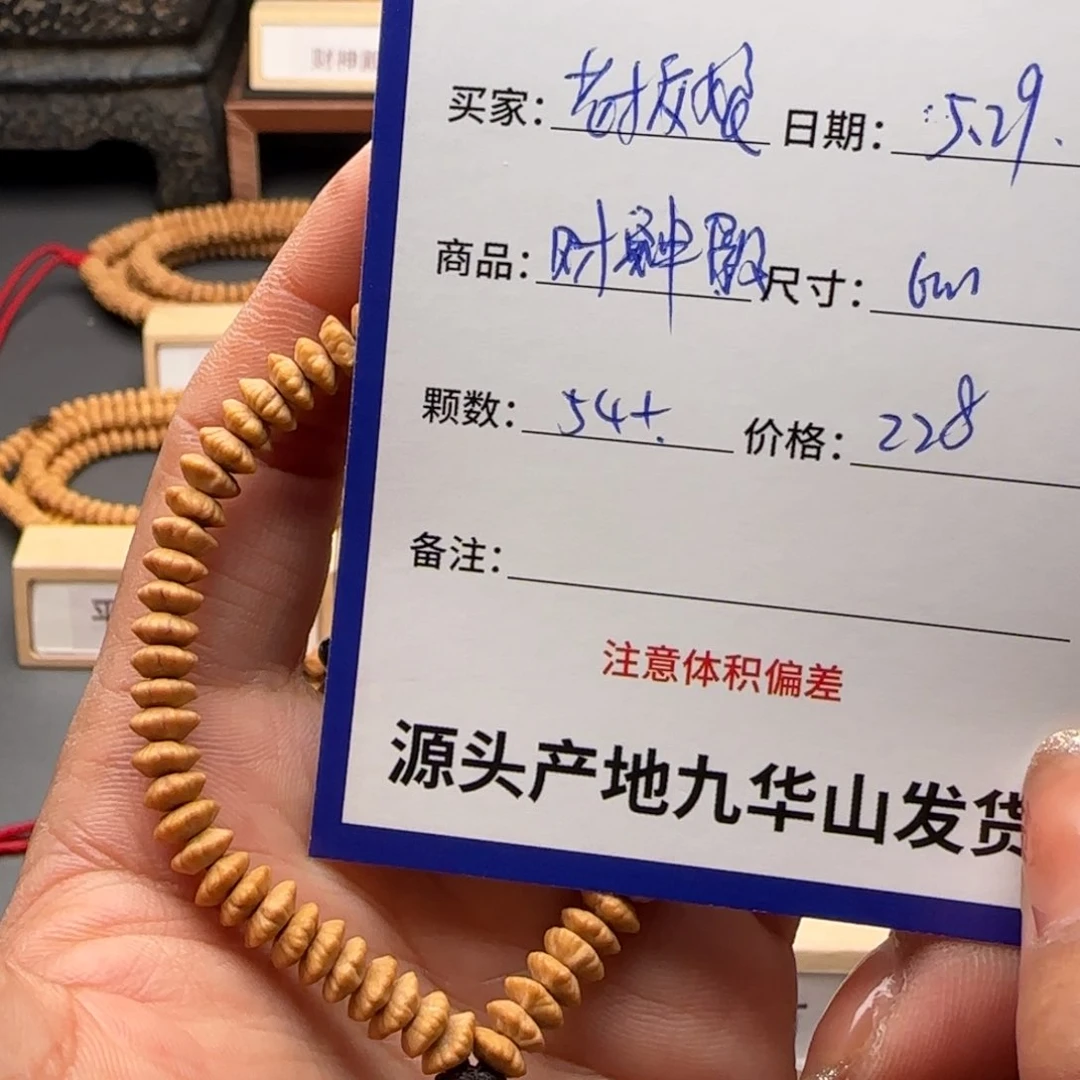 买家： 日期：5.29.
商品：财神殿 尺寸：6m
颗数：54+. 价格：228
备注：
注意体积偏差
源头产地九华山发货